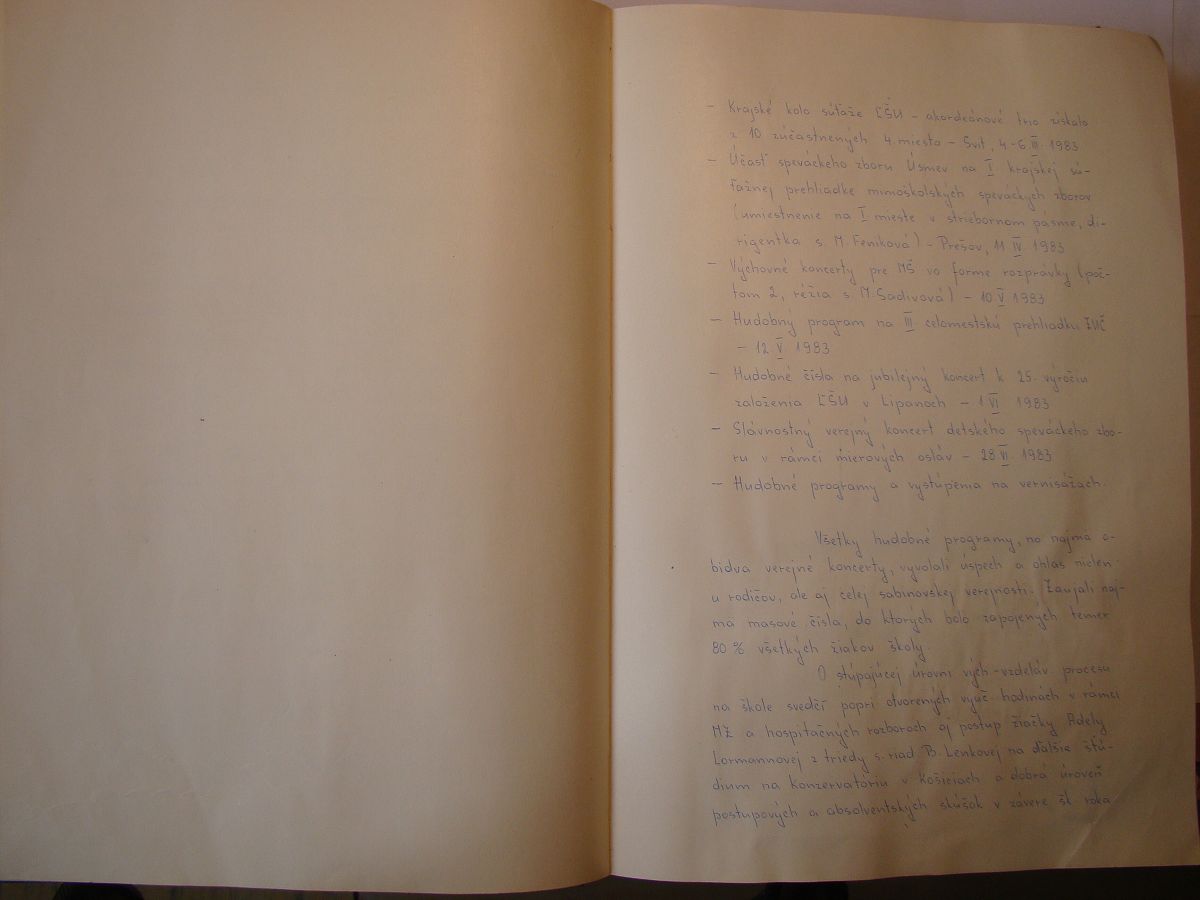 - Krajské kolo súťaže ĽŠU - akordeónové trio získalo
z 10 zúčastnených 4. miesto - Svit, 4.-6. III. 1983
- Účasť speváckeho zboru Úsmev na I. krajskej sú-
ťažnej prehliadke mimoškolských speváckych zborov
(umiestnenie na I. mieste v striebornom pásme, di-
rigentka s. M. Feníková) - Prešov, 11. IV. 1983
- Výchovné koncerty pre MŠ vo forme rozprávky (poč-
tom 2, réžia s. M. Sadivová) - 10. V. 1983
- Hudobný program na III. celomestskú prehliadku ZUČ
- 12. V. 1983
- Hudobné čísla na jubilejný koncert k 25. výročiu
založenia ĽŠU v Lipanoch - 1. VI. 1983
- Slávnostný verejný koncert detského speváckeho zbo-
ru v rámci mierových osláv - 28. VI. 1983
- Hudobné programy a vystúpenia na vernisážach.
Všetky hudobné programy, no najmä o-
bidva verejné koncerty, vyvolali úspech a ohlas nielen
u rodičov, ale aj celej sabinovskej verejnosti. Zaujali naj-
mä masové čísla, do ktorých bolo zapojených temer
80 % všetkých žiakov školy.
O stúpajúcej úrovni vých.-vzdeláv. procesu
na škole svedčí popri otvorených vyuč. hodinách v rámci
MZ a hospitačných rozboroch aj postup žiačky Adely
Lormannovej z triedy s. riad. B. Lenkovej na ďalšie štú-
dium na konzervatóriu v Košiciach a dobrá úroveň
postupových a absolventských skúšok v závere šk. roka